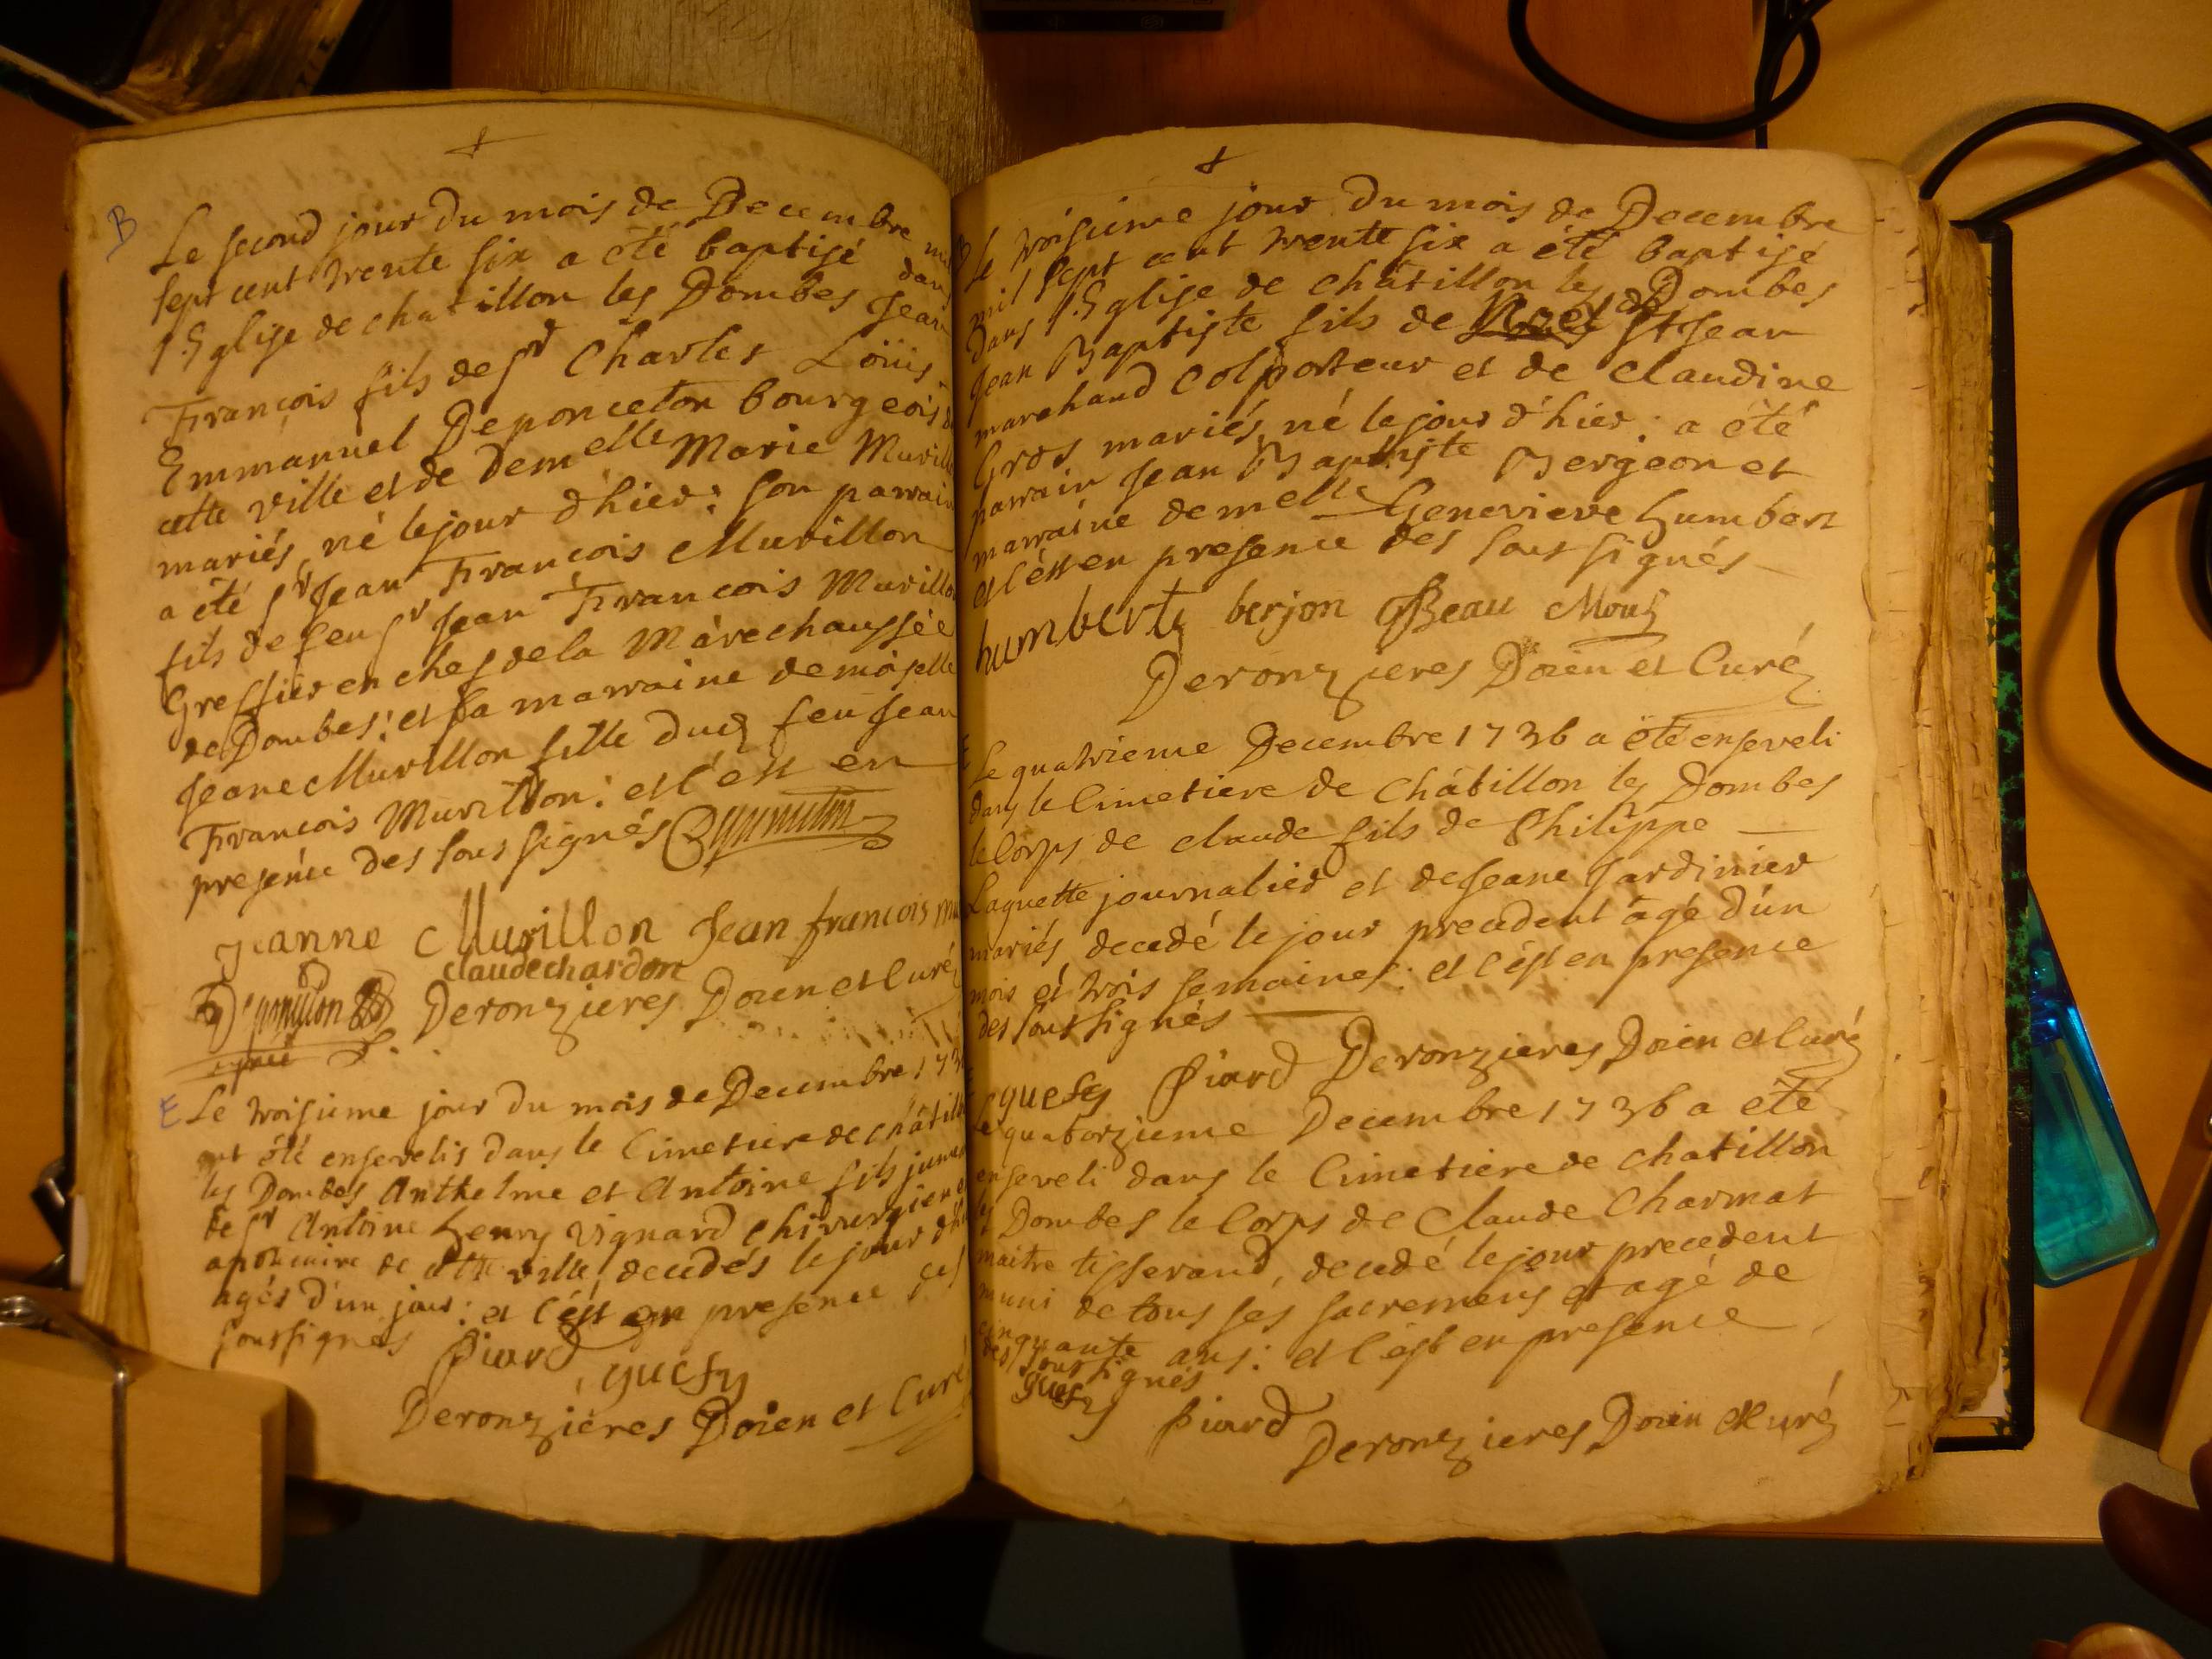 B
Le second jour du mois de Decembre mil
sept cent trente six a été baptisé dans
l'Eglise de chatillon les Dombes Jean
François fils de Sr Charles Loüis
Emmanüel Deponceton bourgeois de
cette ville et de Demelle Marie Murill
mariés, né le jour d'hier: son parrain
a été Sr Jean François Murillon
fils de feu Sr Jean François Murillo
Greffier en chef de la Maréchaussée
de Dombes: et sa marraine demoiselle
Jeane Murillon fille dud feu Jean
François Murillon: et c'est en
presence des soussignés
Jeanne Murillon Jean francois mu
claude chardon
Deronzieres Doien et Curé
E Le troisieme jour du mois de Decembre 173
ont été ensevelis dans le Cimetiere de châtill
les Dombes Anthelme et Antoine fils jume
de Sr Antoine henry Vignard Chirurgien e
apoticaire de cette ville, decedés le jour d'hi
agés d'un jour: et c'est en presence des
soussignés
Piard guesy
Deronzières Doien et Curé
Le troisieme jour du mois de Decembre
mil sept cent trente six a été baptisé
Dans l'Eglise de châtillon les Dombes
Jean Baptiste fils de de St Jean
marchand colporteur et de Claudine
Gros mariés, né le jour d'hier: a été
parrain Jean Baptiste Bergeon et
marraine demelle Genevieve humbert
et c'est en presence des soussignés
humberte berjon Beau
Deronzieres Doien et Curé
E
Le quatrieme Decembre 1736 a été enseveli
dans le Cimetiere de Châtillon les Dombes
le Corps de claude fils de Philippe
Laquette journalier et de Jeane Jardinier
mariés, decedé le jour precedent âgé d'un
mois et trois semaines: et c'est en presence
des soussignés
guesy Piard Deronzieres Doien et Curé
Le quatorzieme Decembre 1736 a été
enseveli dans le Cimetiere de chatillon
les Dombes le Corps de Claude Charmat
maitre tisserand, decedé le jour precedent
muni de tous ses sacremens et agé de
cinquante ans: et c'est en presence
des soussignés
guesy Piard
Deronzieres Doien et Curé